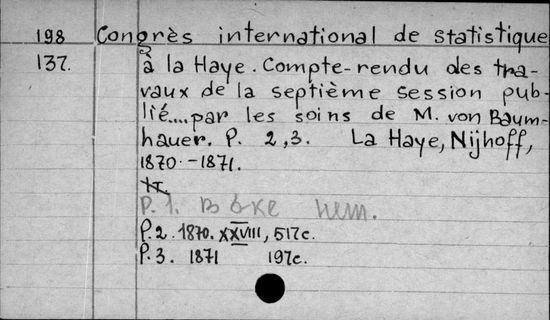 198 Congrès international de statistique
137. à la Haye. Compte-rendu des tra-
vaux de la septième session pub-
lié.... par les soins de M. von Baum-
hauer. P. 2,3. La Haye, Nijhoff,
1870.-1871.
P. 1. в бке нет.
P.2. 1870. XXVIII, 517c.
P.3. 1871 197c.